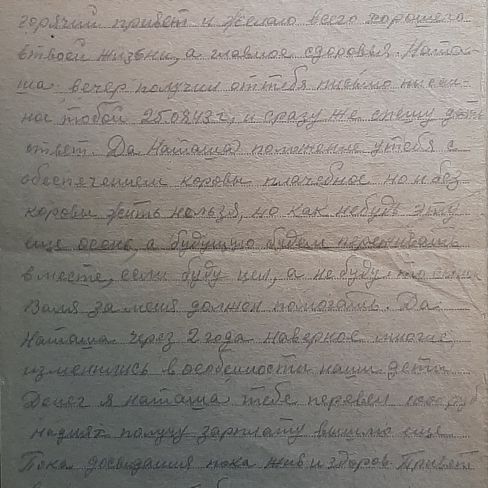 горячий привет и желаю всего хорошего
втвоей жизьни, а главное сдоровья. Ната-
ша вечер получил оттебя письмо писен-
ное тобой 250843г, и сразу же спешу дать
ответ. Да Наташа положение утебя с
обеспечением коровы плачебное но и без
коровы жить нельзя, но как небудь эту
еще осень, а будущую будем переживать
вместе, если буду цел, а небуду то сын
Валя за меня должон помогать. Да
Наташа через 2 года наверное многие
изменились в особенности наши дети
Денег я наташа тебе перевел 1000 руб
наднях получу зарплату вышлю еще
Пока досвидания пока жив и здоров Привет